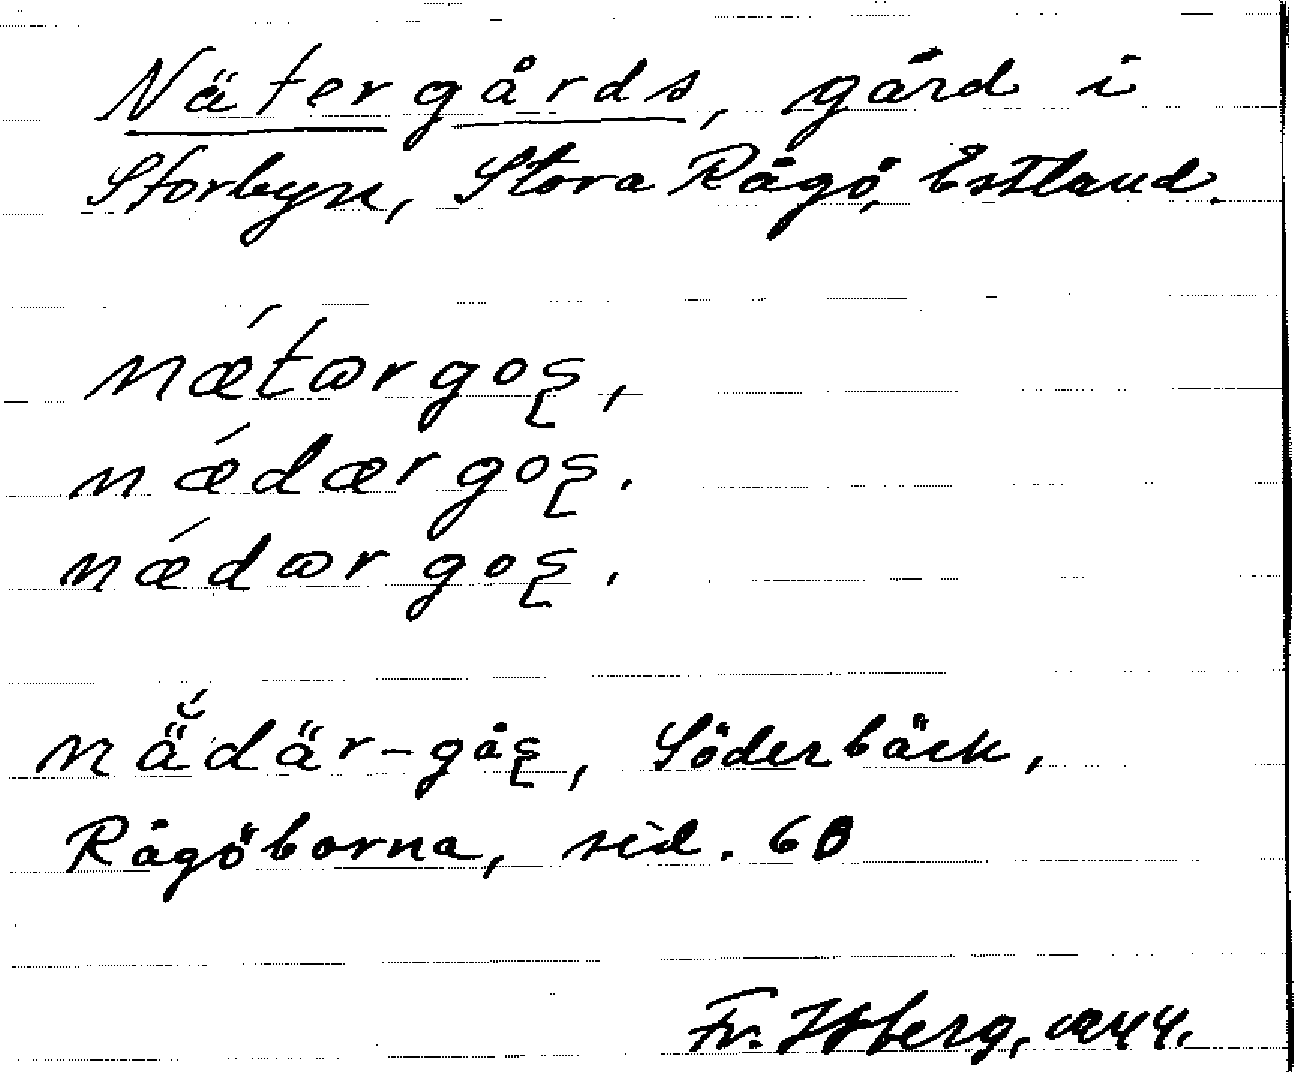 Nätergårds, gård i
Storbyn, Stora Rågö, Estland.
nǽtərgoʂ,
nǽdærgoʂ.
nǽdərgoʂ.
nä̆́där-gåʂ, Söderbäck,
Rågöborna, sid. 60
Fr.